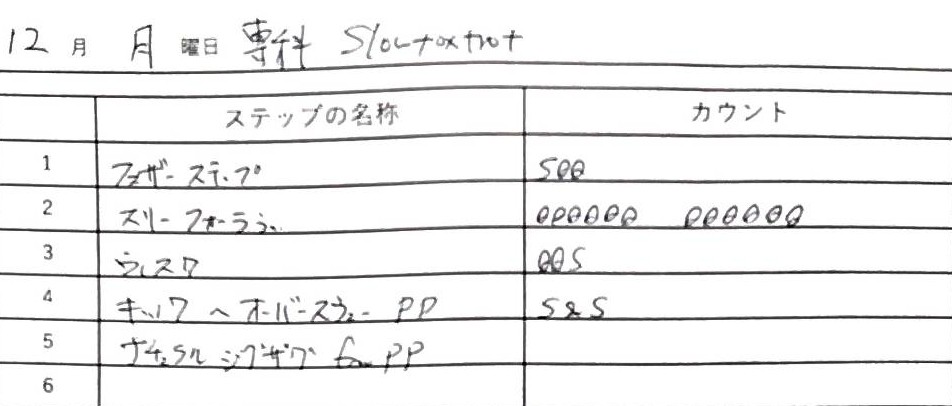 12 月 月 曜日 専科 Slowfoxtrot
ステップの名称 カウント
1 フェザーステップ SQQ
2 スリーフォーラウェ QQQQQQ QQQQQQ
3 ウィスク QQS
4 キック へ オーバースウェー PP S&S
5 ナチュラル ジグザグ from PP
6